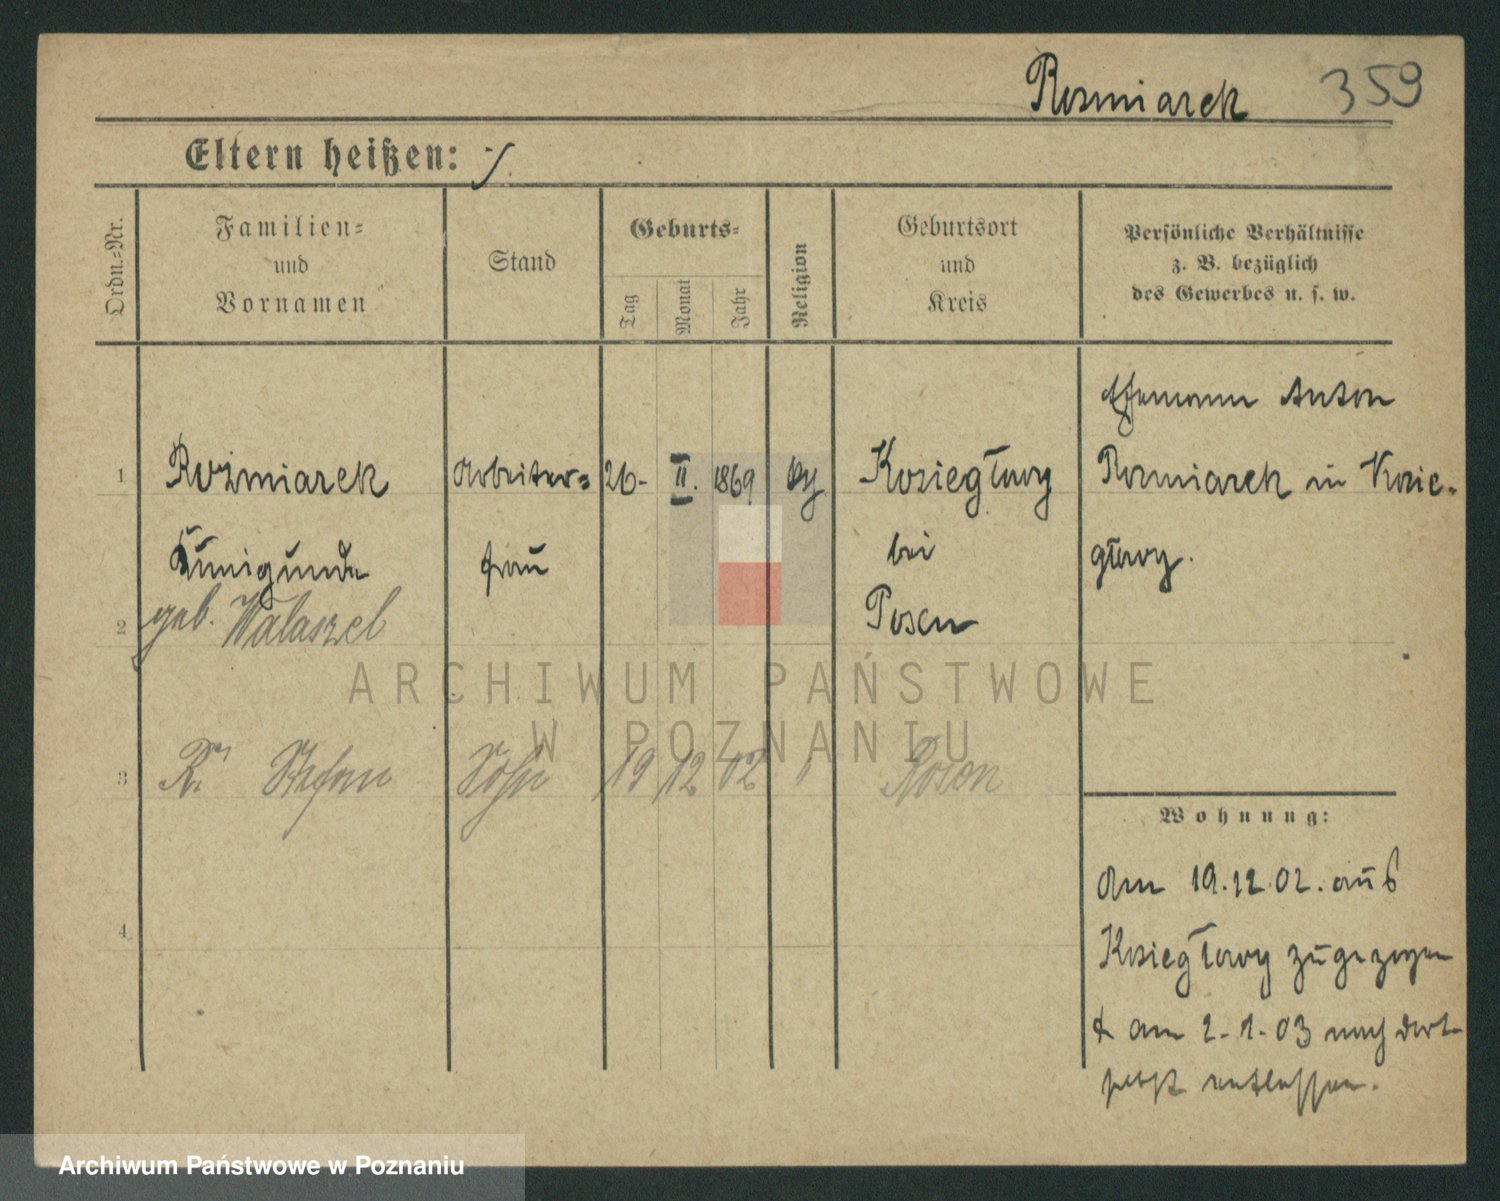 Rozmiarek 359
Eltern heißen: -/.
Ordn.-Nr.
Familien-
und
Vornamen
Stand
Geburts-
Tag
Monat
Jahr
Religion
Geburtsort
und
Kreis
Persönliche Verhältnisse
z. B. bezüglich
des Gewerbes u. s. w.
Ehemann Anton
1 Rozmiarek Arbeiter- 26. II. 1869 Koziegłowy Rozmiarek in Kozie-
Kunigunde frau bei głowy.
2 geb. Walaszek Posen
ARCHIWUM PAŃSTWOWE
W POZNANIU
3 R. Stefan Sohn 19 12 02 " Posen
Wohnung:
4
am 19.12.02. aus
Koziegłowy zugezogen
& am 2.1.03 nach dort-
selbst entlassen.
Archiwum Państwowe w Poznaniu